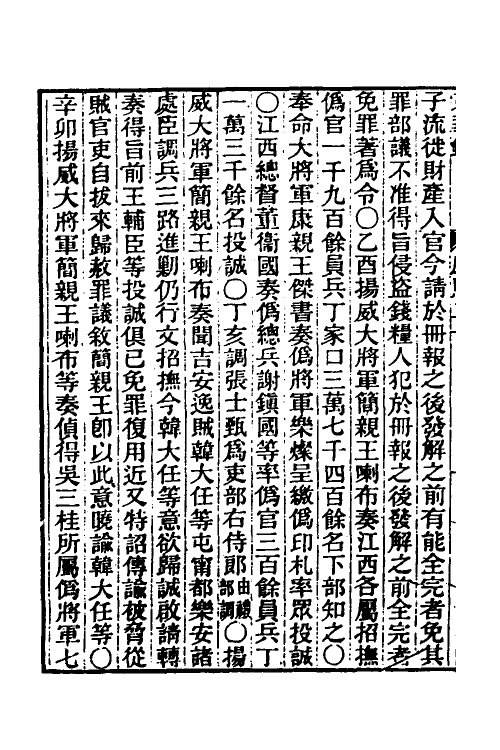 子流徙財產入官今請於冊報之後發解之前有能全完者免其
罪部議不准得旨侵盜錢糧人犯於冊報之後發解之前全完者
免罪著爲令〇乙酉揚威大將軍簡親王喇布奏江西各屬招撫
僞官一千九百餘員兵丁家口三萬七千四百餘名下部知之〇
奉命大將軍康親王傑書奏僞將軍樂燦呈繳僞印札率眾投誠
〇江西總督董衞國奏僞總兵謝鎭國等率僞官三百餘員兵丁
一萬三千餘名投誠〇丁亥調張士甄爲吏部右侍郎由禮部調〇揚
威大將軍簡親王喇布奏聞吉安逸賊韓大任等屯甯都樂安諸
處臣調兵三路進勦仍行文招撫今韓大任等意欲歸誠啟請轉
奏得旨前王輔臣等投誠俱已免罪復用近又特詔傳諭被脅從
賊官吏自拔來歸赦罪議敘簡親王卽以此意曉諭韓大任等〇
辛卯揚威大將軍簡親王喇布等奏偵得吳三桂所屬僞將軍七